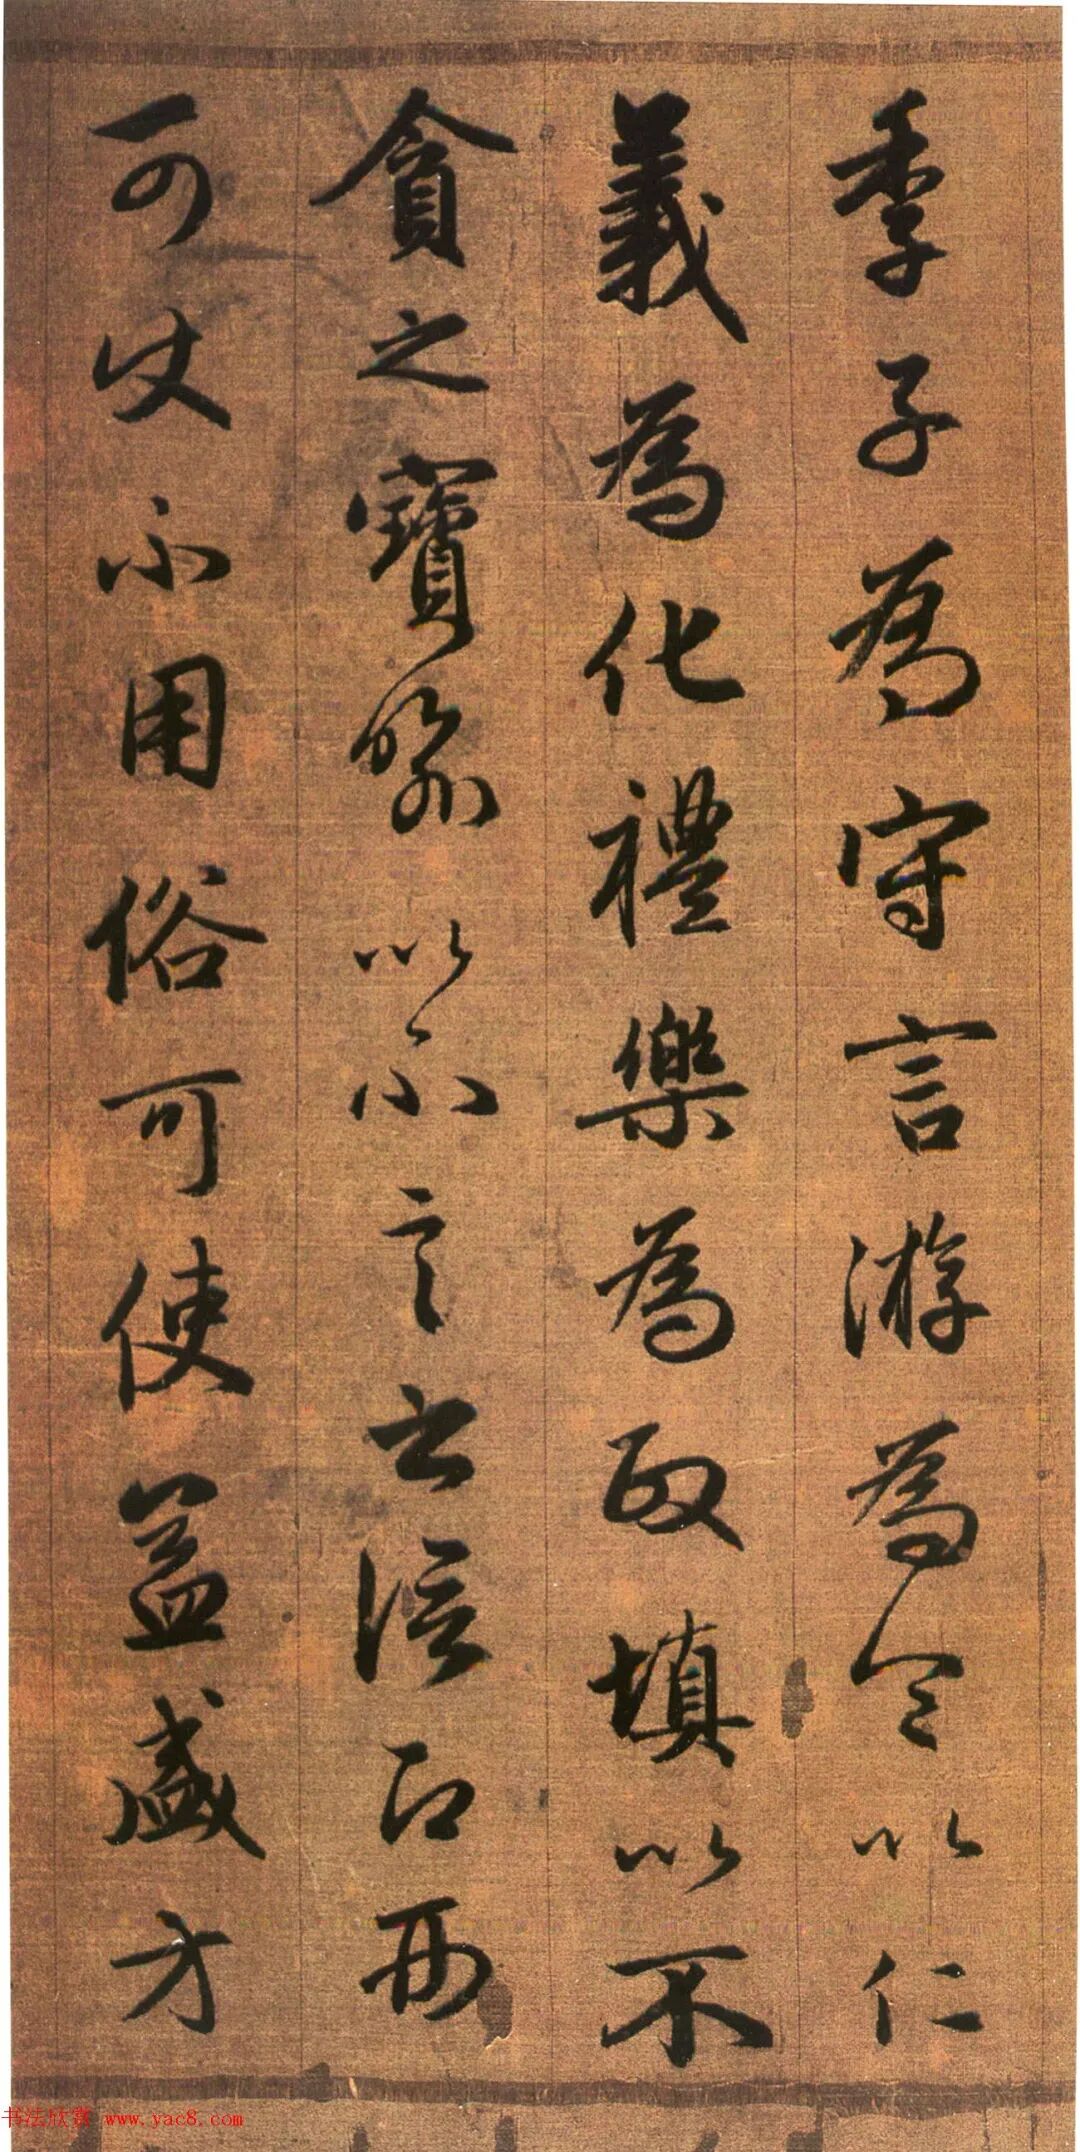 季子為守言游為令以仁
義為化禮樂為政填以不
貪之寶喻以不言之信
可使不用俗可使益盛方
书法欣赏 www.yac8.com